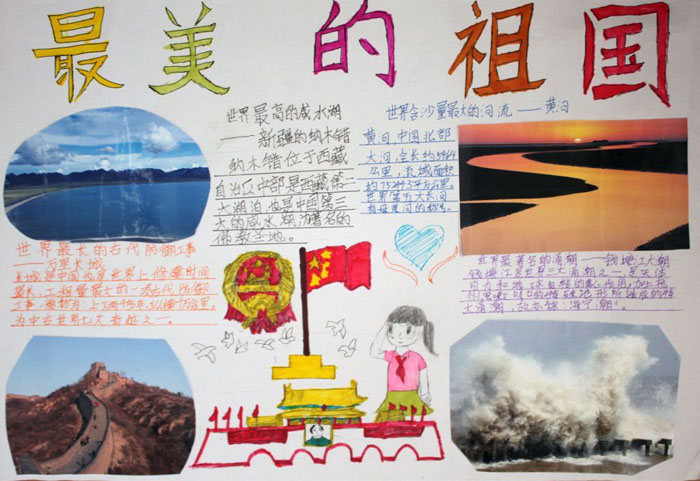 最美的祖国
世界最高的咸水湖
——新疆的纳木错
纳木错位于西藏
自治区中部是西藏第一
大湖泊也是中国第三
大的咸水湖湖著名的
佛教圣地。
世界含沙量最大的河流——黄河
黄河中国北部
大河,全长约5464
公里,流域面积
约752443平方公里。
世界第五大长河
有母亲河的称号。
世界最长的古代防御工事
——万里长城
长城是中国也是世界上修建时间
最长,工程量最大的一项古代防御
工事,上下两千多年,纵横十万余里
为中古世界七大奇迹之一。
世界最著名的涌潮——钱塘江大潮
钱塘江是世界三大涌潮之一,是天体
引力和地球自转的离心作用,加上杭
州湾喇叭口的特殊地形所造成的特
大涌潮,故亦称"海宁潮"。